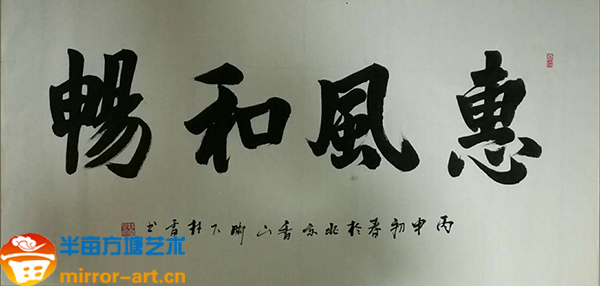 惠風和暢
丙申初春於北京香山脚下书
半亩方塘艺术
mirror-art.cn